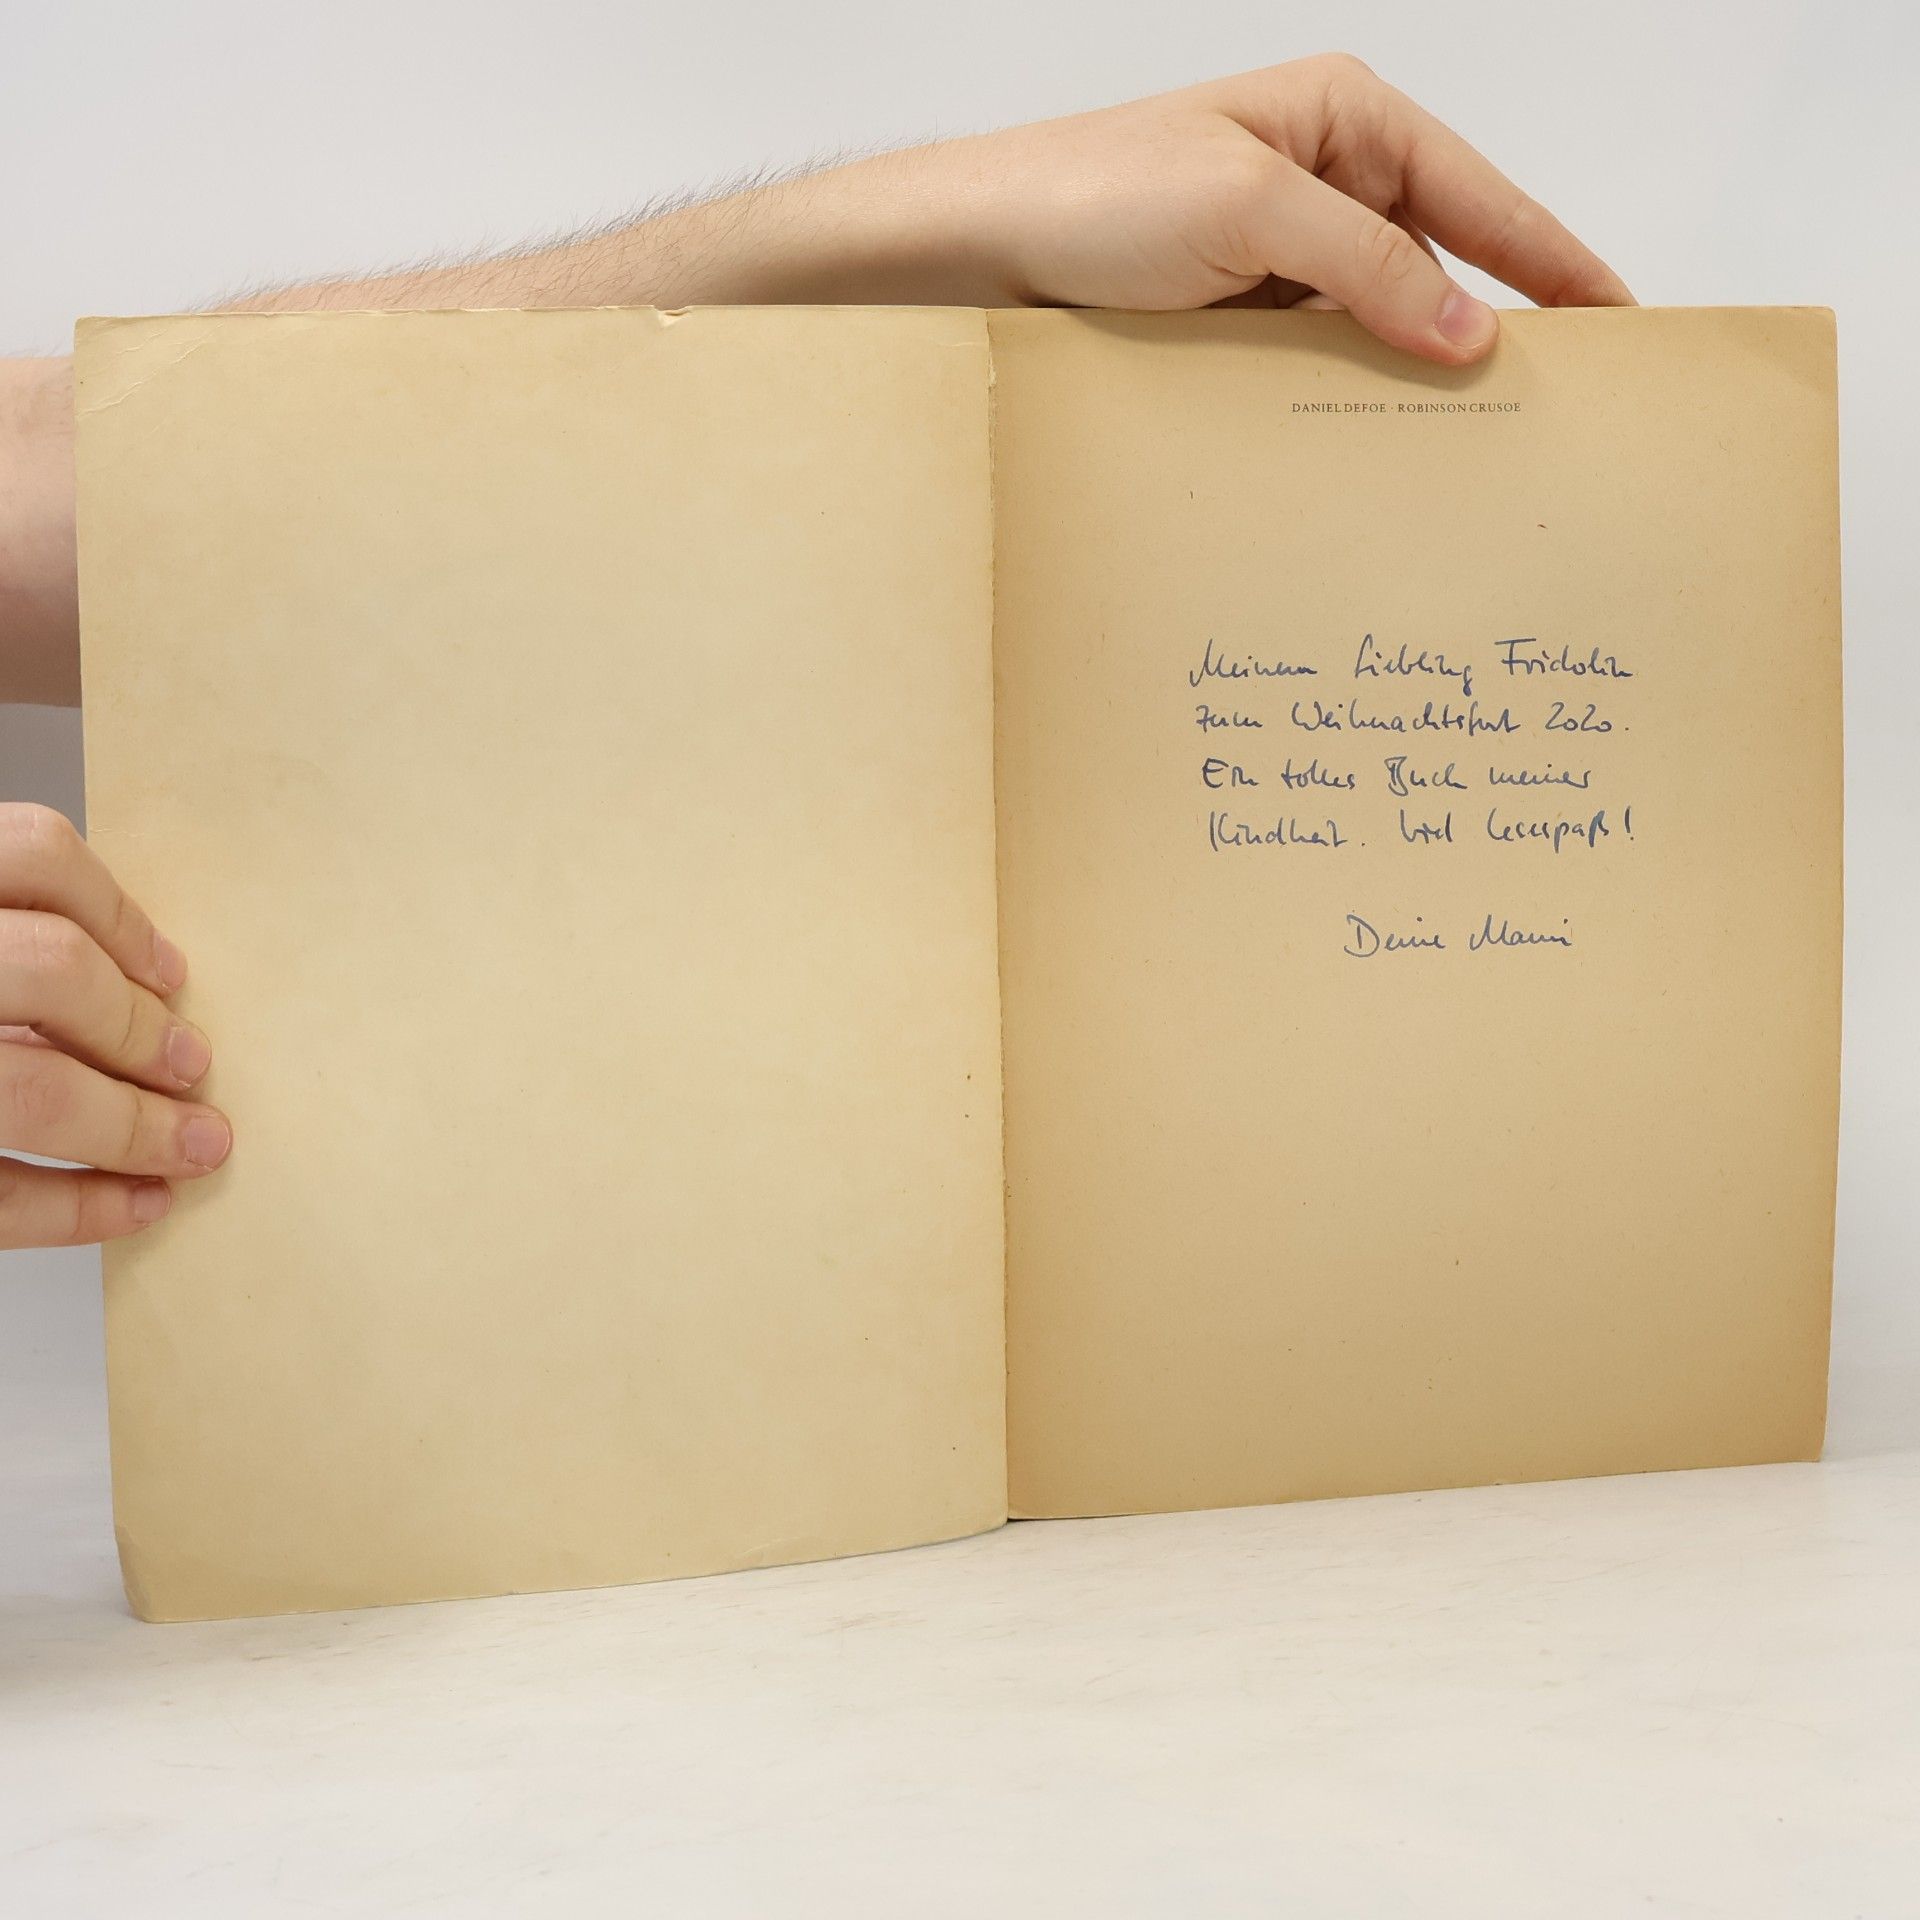 DANIEL DEFOE · ROBINSON CRUSOE
Meinem Liebling Fridolin
zum Weihnachtsfest 2020.
Ein tolles Buch meiner
Kindheit. Viel Lesespaß!
Deine Mami